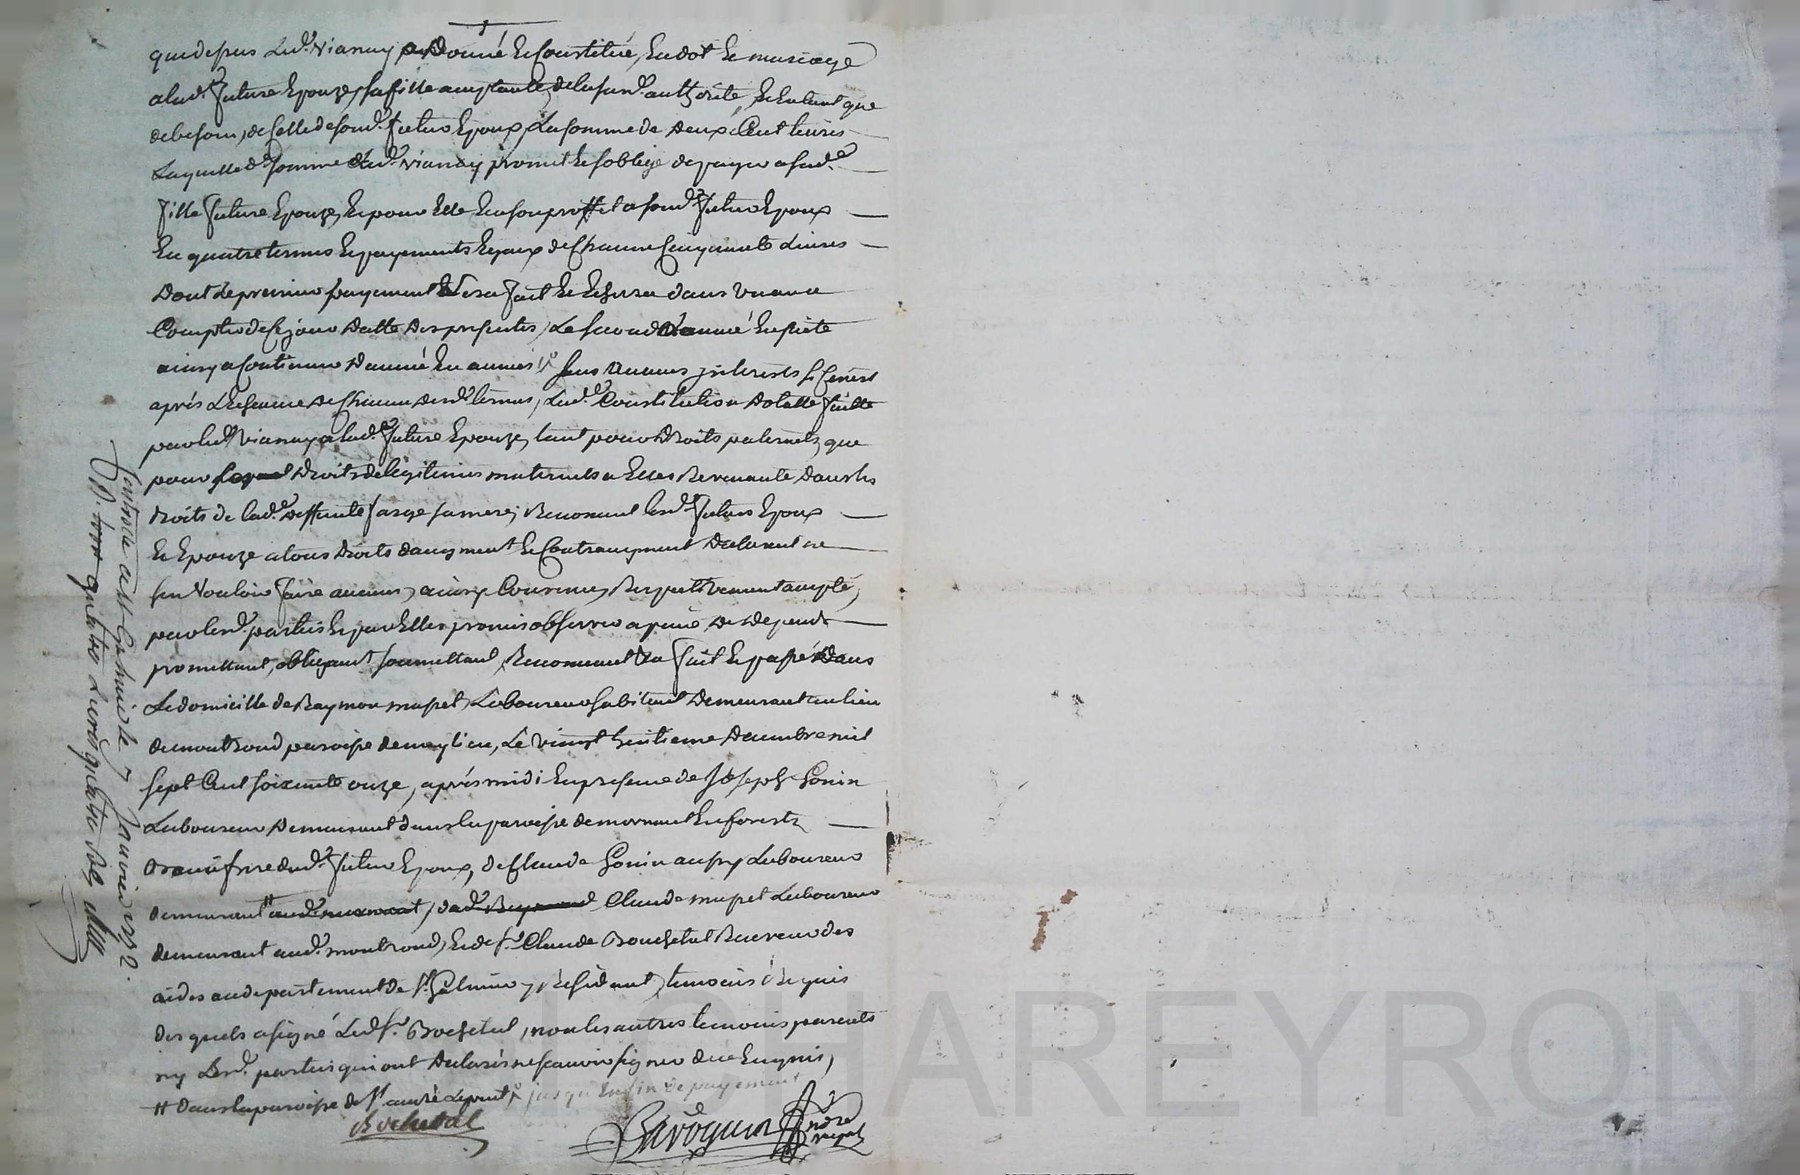 que depuis Led. Vianay a Donné Et Constitué, En dot Et mariage
a lad. future Epouze, sa fille acceptante, de la susd. authorité, Et Entant que
de besoin, de Celle de sond. futur Epoux, La somme de Deux Cent livres
Laquelle d. somme Led. Vianay promet Et soblige de payer a sad.
fille future Epouze, Et pour Elle En son proffit a sond. futur Epoux
En quatre termes Et payements Egaux de Chacun Cinquante Livres
Dont Le premier payement Sera fait Et Echera dans un an a
Compter de Ce jour Datte Des presentes, Le second année Ensuite
ainsy a Continuer Dannée En année sans Aucuns jnterests si Cenest
après L'Echeance De Chacun desd. termes, Lad. Constitution Dotalle faitte
par led. Vianay a lad. future Epouze, tant pour Droits paternels, que
pour Droits de legitimes maternels a Elles Revenante Dans les
droits de lad. Deffunte farge sa mere; Renoncent lesd. futurs Epoux
Et Epouze a tous Droits daugment Et Contreaugment Declarent ne
sen Vouloir faire aucuns, ainsy Convenu, Respectivement accepté,
par lesd. parties Et par Elles promis observer a peine De Depends
promettant, obligeant soumettant, Renonceant fait Et passé Dans
Le domicille de Raymon mupet, Laboureur habitant Demeurant au lieu
de montrond paroisse de meylieu, Le vingt huitieme Decembre mil
sept Cent soixante onze, après midi En presence de Joseph Gonin
Laboureur Demeurant dans la paroisse de mornand En forests
frere dud. futur Epoux, de Claude Gonin aussy Laboureur
demeurant Claude mupet Laboureur
demeurant aud. montrond, Et de sr. Claude Bouchetal Receveur des
aides au departement de st. Galmier y Résidant, temoins Requis
des quels a signé Led. sr. Bochetal, non les autres temoins parents
ny Lesd. parties qui ont Declarés ne scavoir signer de ce Enquis,
# Dans la paroisse de st. andré Le puit jusqu'En fin de payement
Bochetal
Baroquin
André mupet
Controllé a st Galmier le 7 janvier 1772
quatre Livres quatre sols
CHAREYRON